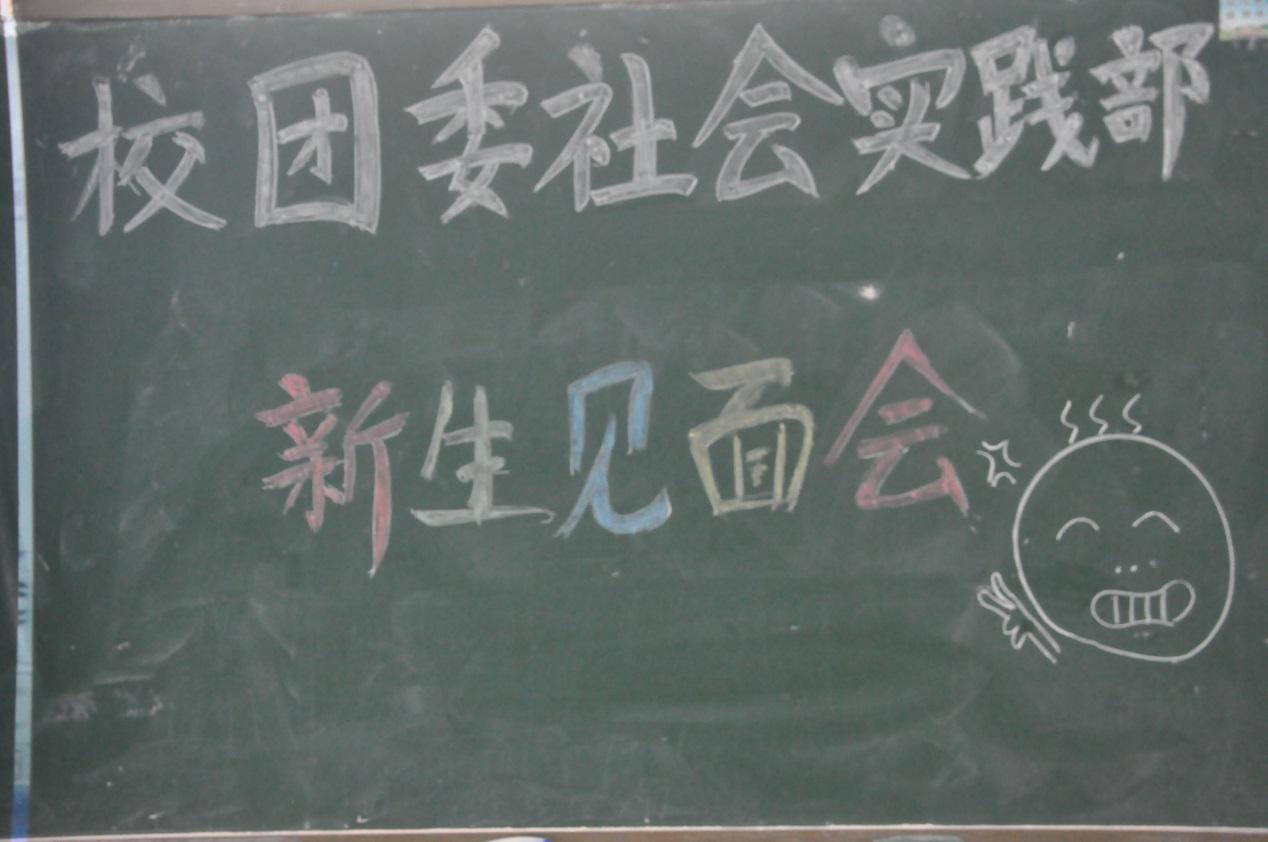 校团委社会实践部
新生见面会